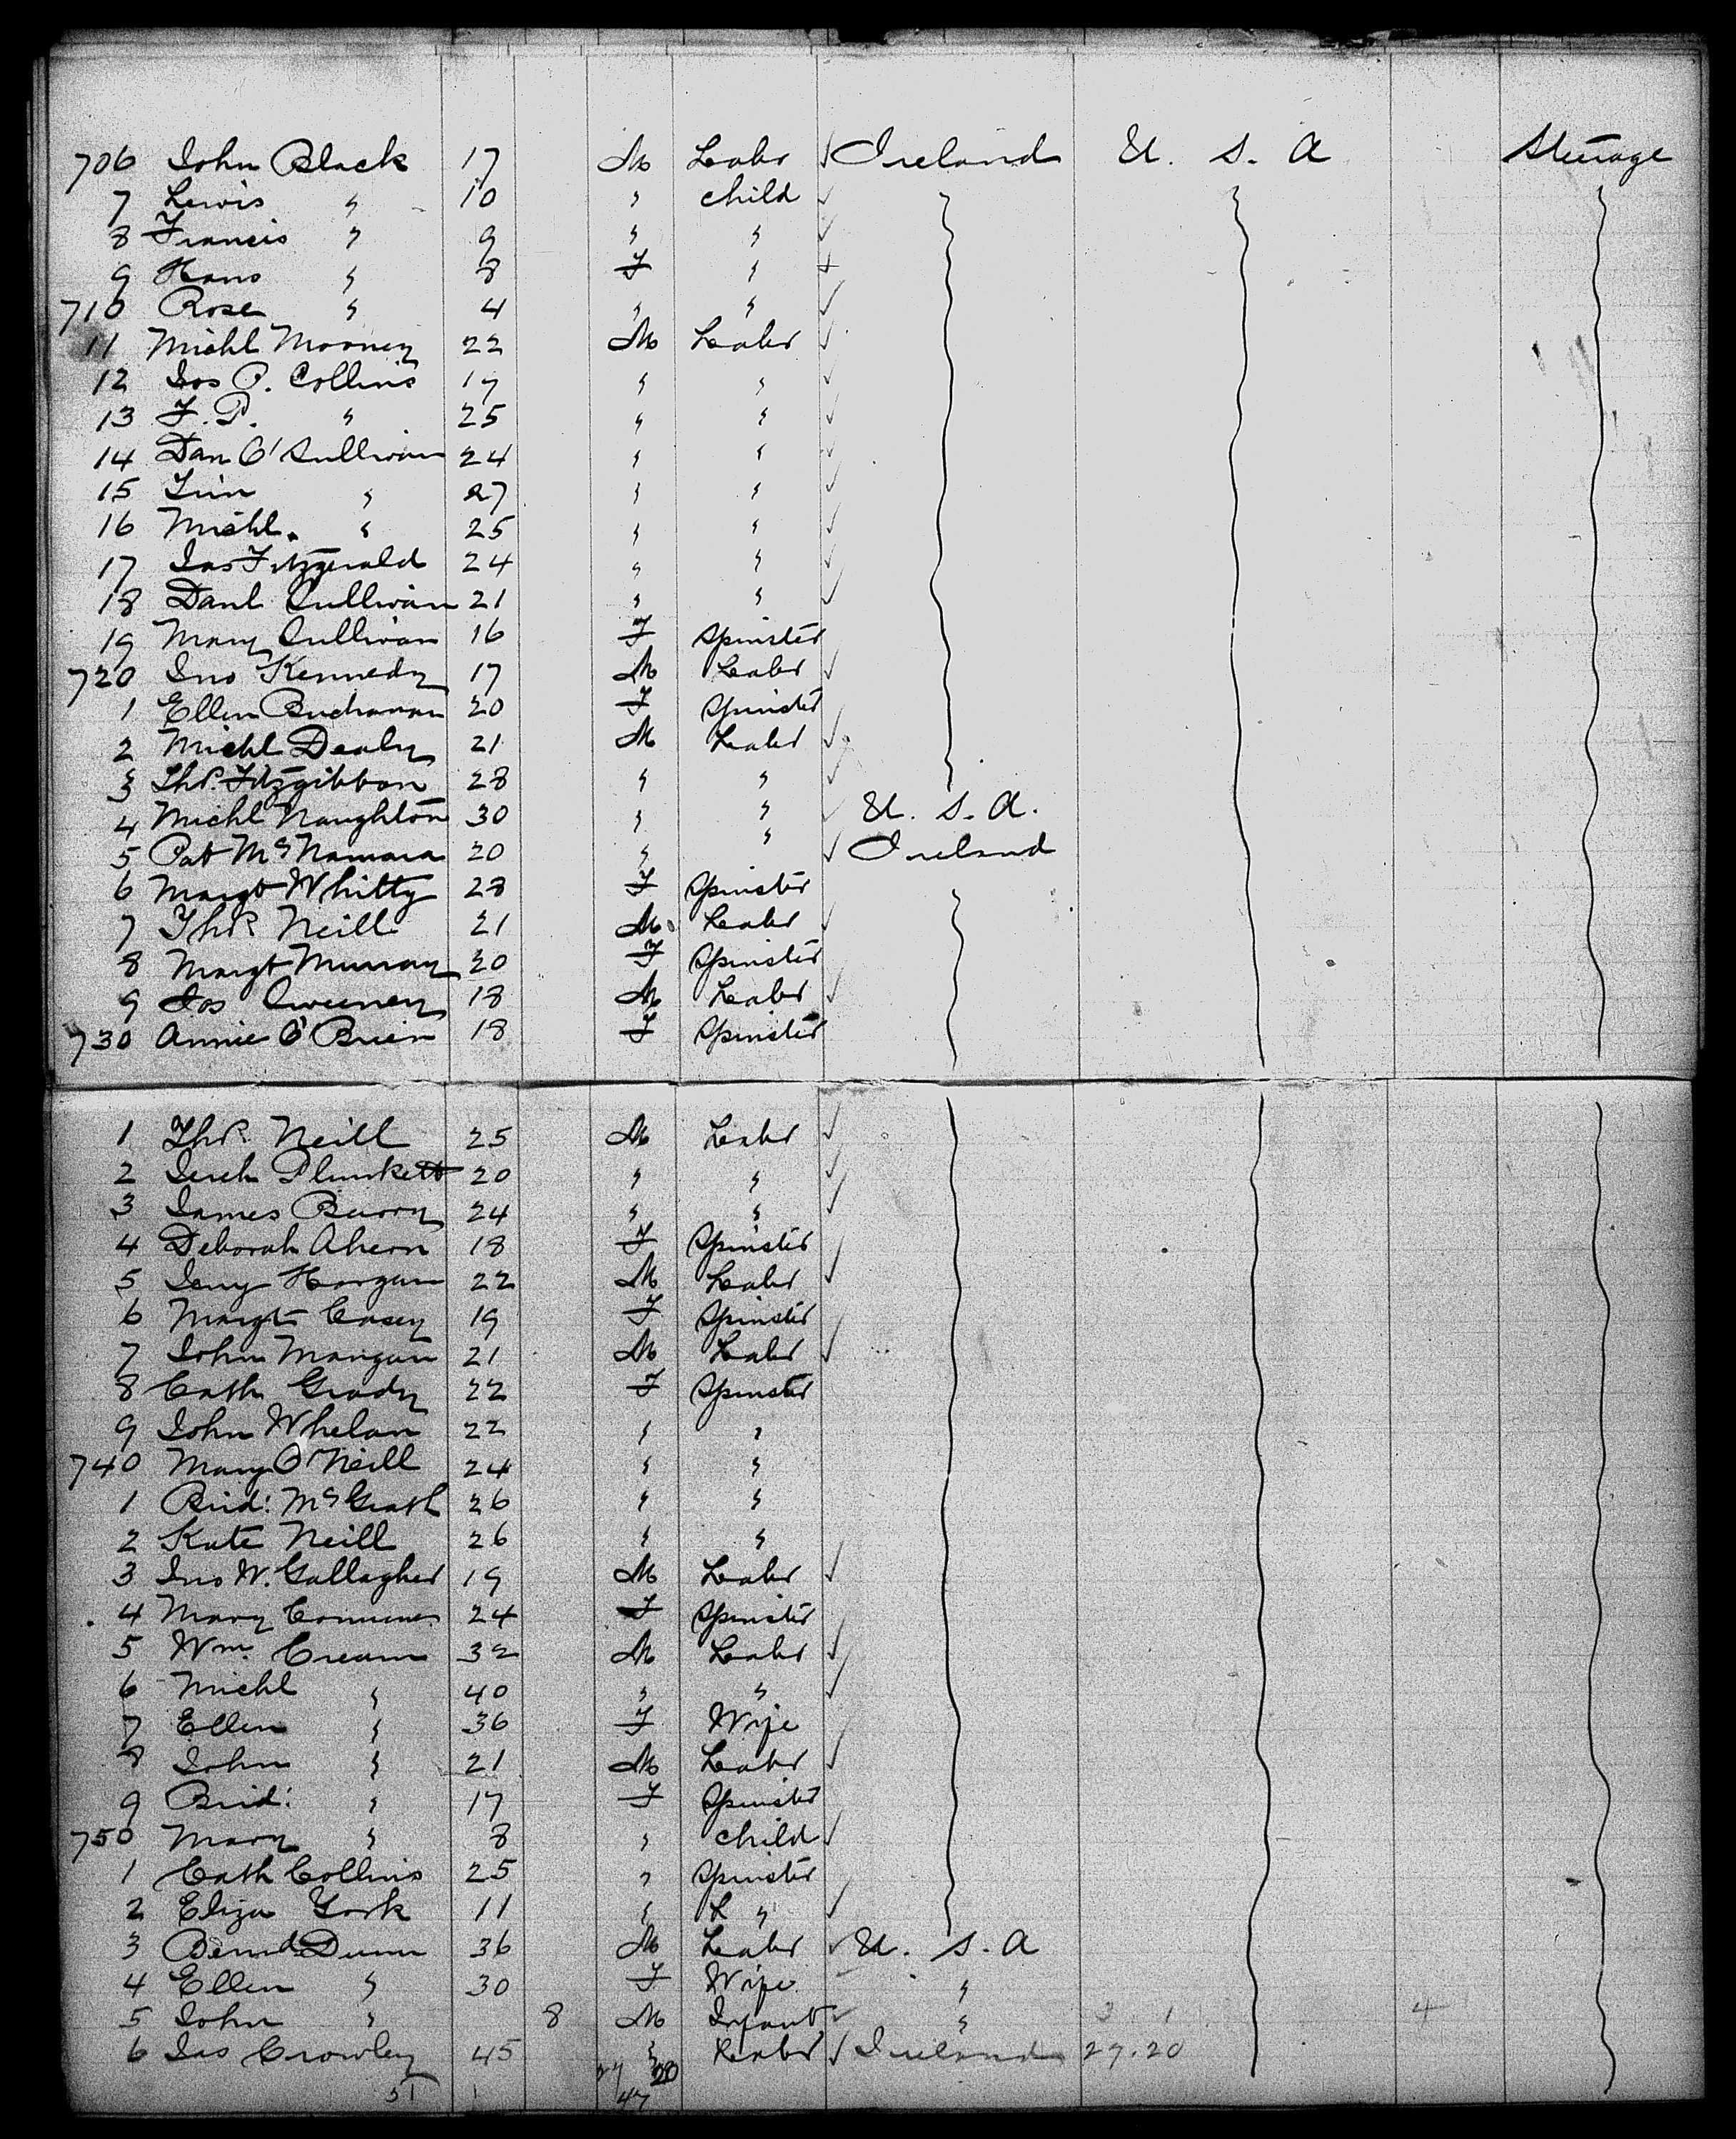 706 John Black 17 M Labr Ireland U. S. A Steerage
7 Lewis " 10 " child
8 Francis " 9 " "
9 Hans " 8 F "
710 Rose " 4 " "
11 Michl Mooney 22 M Labr
12 Jos P. Collins 17 " "
13 F. P. " 25 " "
14 Dan O'Sullivan 24 " "
15 Tim " 27 " "
16 Michl. " 25 " "
17 Jas Fitzgerald 24 " "
18 Danl Sullivan 21 " "
19 Mary Sullivan 16 F Spinster
720 Jno Kennedy 17 M Labr
1 Ellen Buchanan 20 F Spinster
2 Michl Dealy 21 M Labr
3 Thos. Fitzgibbon 28 " "
4 Michl Naughton 30 " " U. S. A.
5 Pat McNamara 20 " " Ireland
6 Margt Whitty 28 F Spinster
7 Thos Neill 21 M Labr
8 Margt Murray 20 F Spinster
9 Jos Sweeney 18 M Labr
730 Annie O'Brien 18 F Spinster
1 Thos. Neill 25 M Labr
2 Jereh Plunkett 20 " "
3 James Barry 24 " "
4 Deborah Ahern 18 F Spinster
5 Jerry Horgan 22 M Labr
6 Margt Casey 19 F Spinster
7 John Mangan 21 M Labr
8 Cath Grady 22 F Spinster
9 John Whelan 22 " "
740 Mary O'Neill 24 " "
1 Brid: McGrath 26 " "
2 Kate Neill 26 " "
3 Jno W. Gallagher 19 M Labr
4 Mary 24 F Spinster
5 Wm. Cream 32 M Labr
6 Michl " 40 " "
7 Ellen " 36 F Wife
8 John " 21 M Labr
9 Brid: " 17 F Spinster
750 Mary " 8 " child
1 Cath Collins 25 " Spinster
2 Eliza York 11 " "
3 Bernd Dunn 36 M Labr U. S. A
4 Ellen " 30 F Wife "
5 John " 8 M Infant " 3 1 4
6 Jas Crowley 45 " Labr Ireland 27.20
51 1 27 20
47